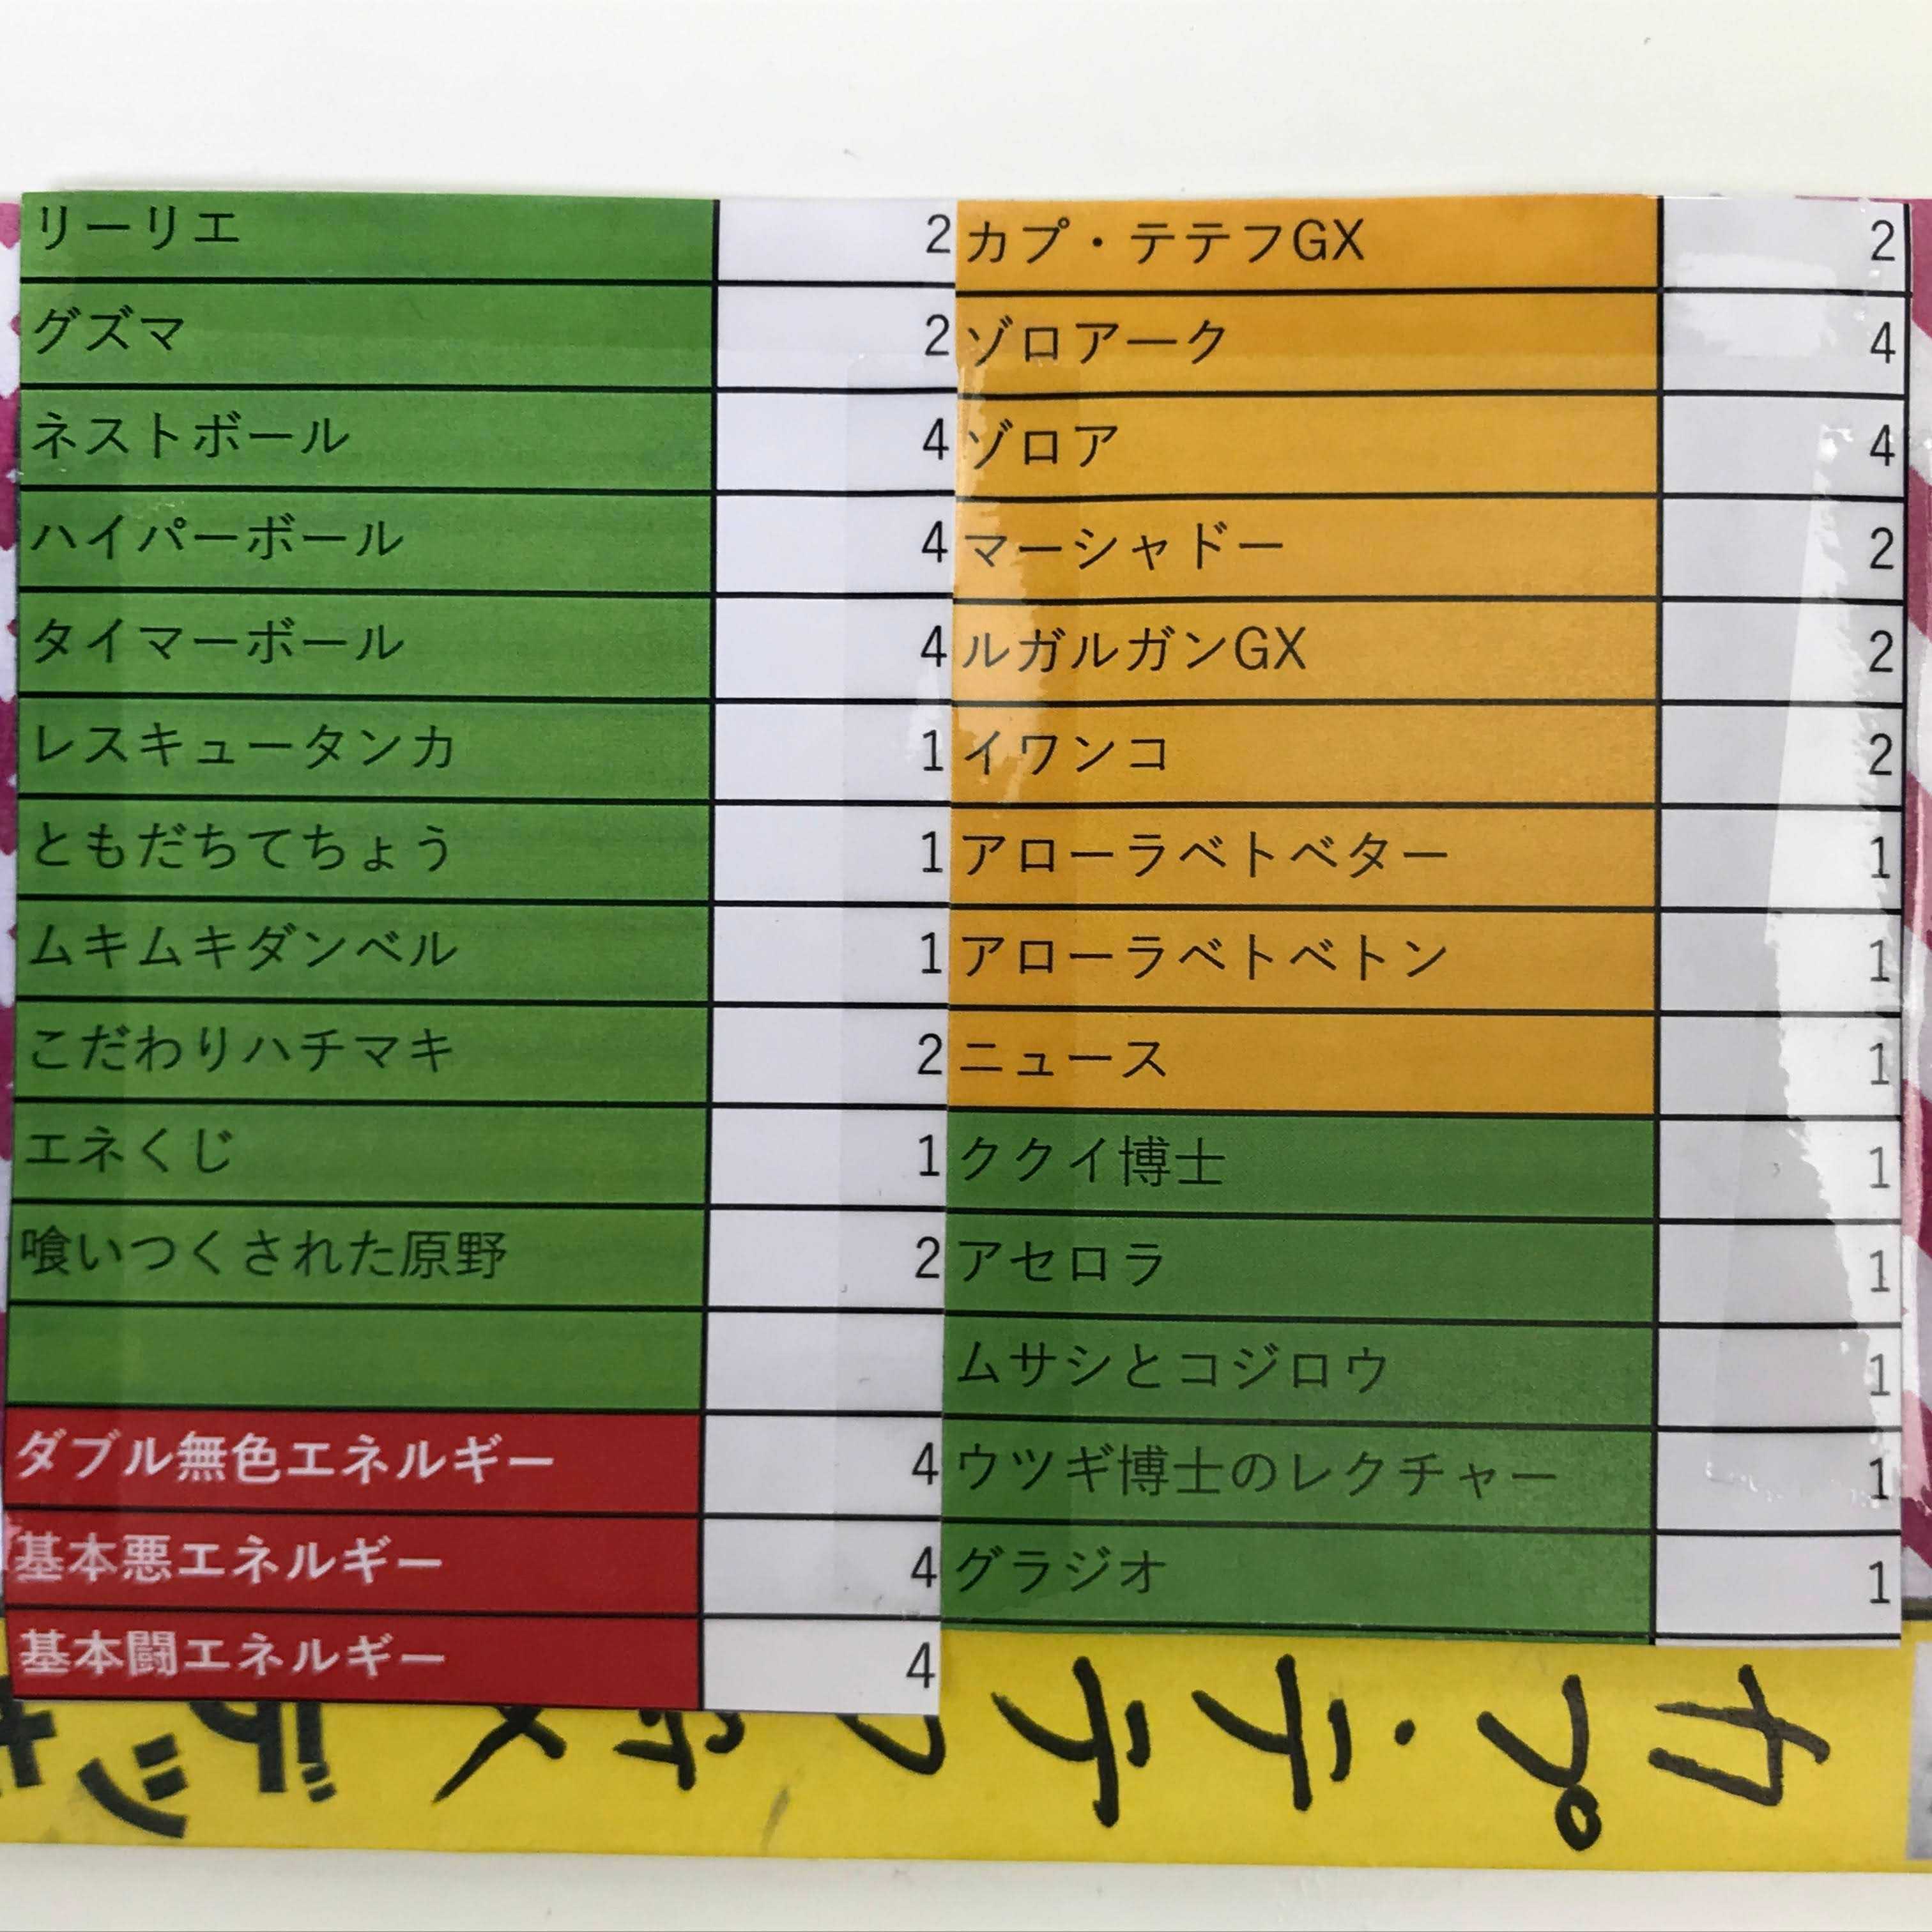 リーリエ 2
グズマ 2
ネストボール 4
ハイパーボール 4
タイマーボール 4
レスキュータンカ 1
ともだちてちょう 1
ムキムキダンベル 1
こだわりハチマキ 2
エネくじ 1
喰いつくされた原野 2
ダブル無色エネルギー 4
基本悪エネルギー 4
基本闘エネルギー 4
カプ・テテフGX 2
ゾロアーク 4
ゾロア 4
マーシャドー 2
ルガルガンGX 2
イワンコ 2
アローラベトベター 1
アローラベトベトン 1
ニュース 1
ククイ博士 1
アセロラ 1
ムサシとコジロウ 1
ウツギ博士のレクチャー 1
グラジオ 1
カプ・テテ